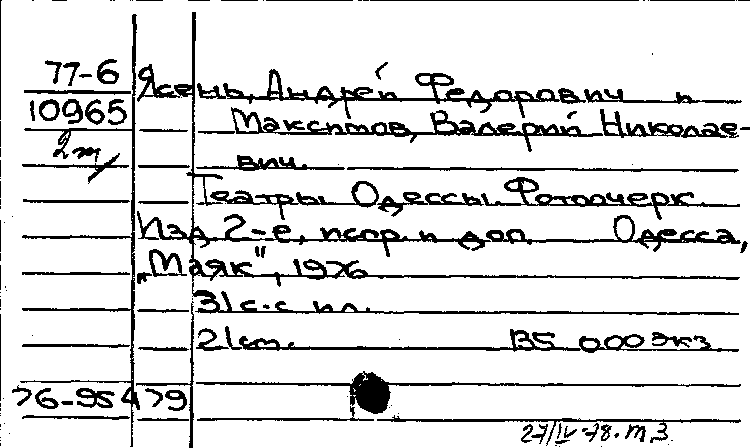 77-6 Ясень, Андрей Федорович и
10965 Максимов, Валерий Николае-
2м/ вич.
Театры Одессы. Фотоочерк.
Изд 2-е, испр. и доп. Одесса,
„Маяк", 1976
31 с. с ил.
21 см. 135 000 экз
76-95479
27/IV-78. м.З.